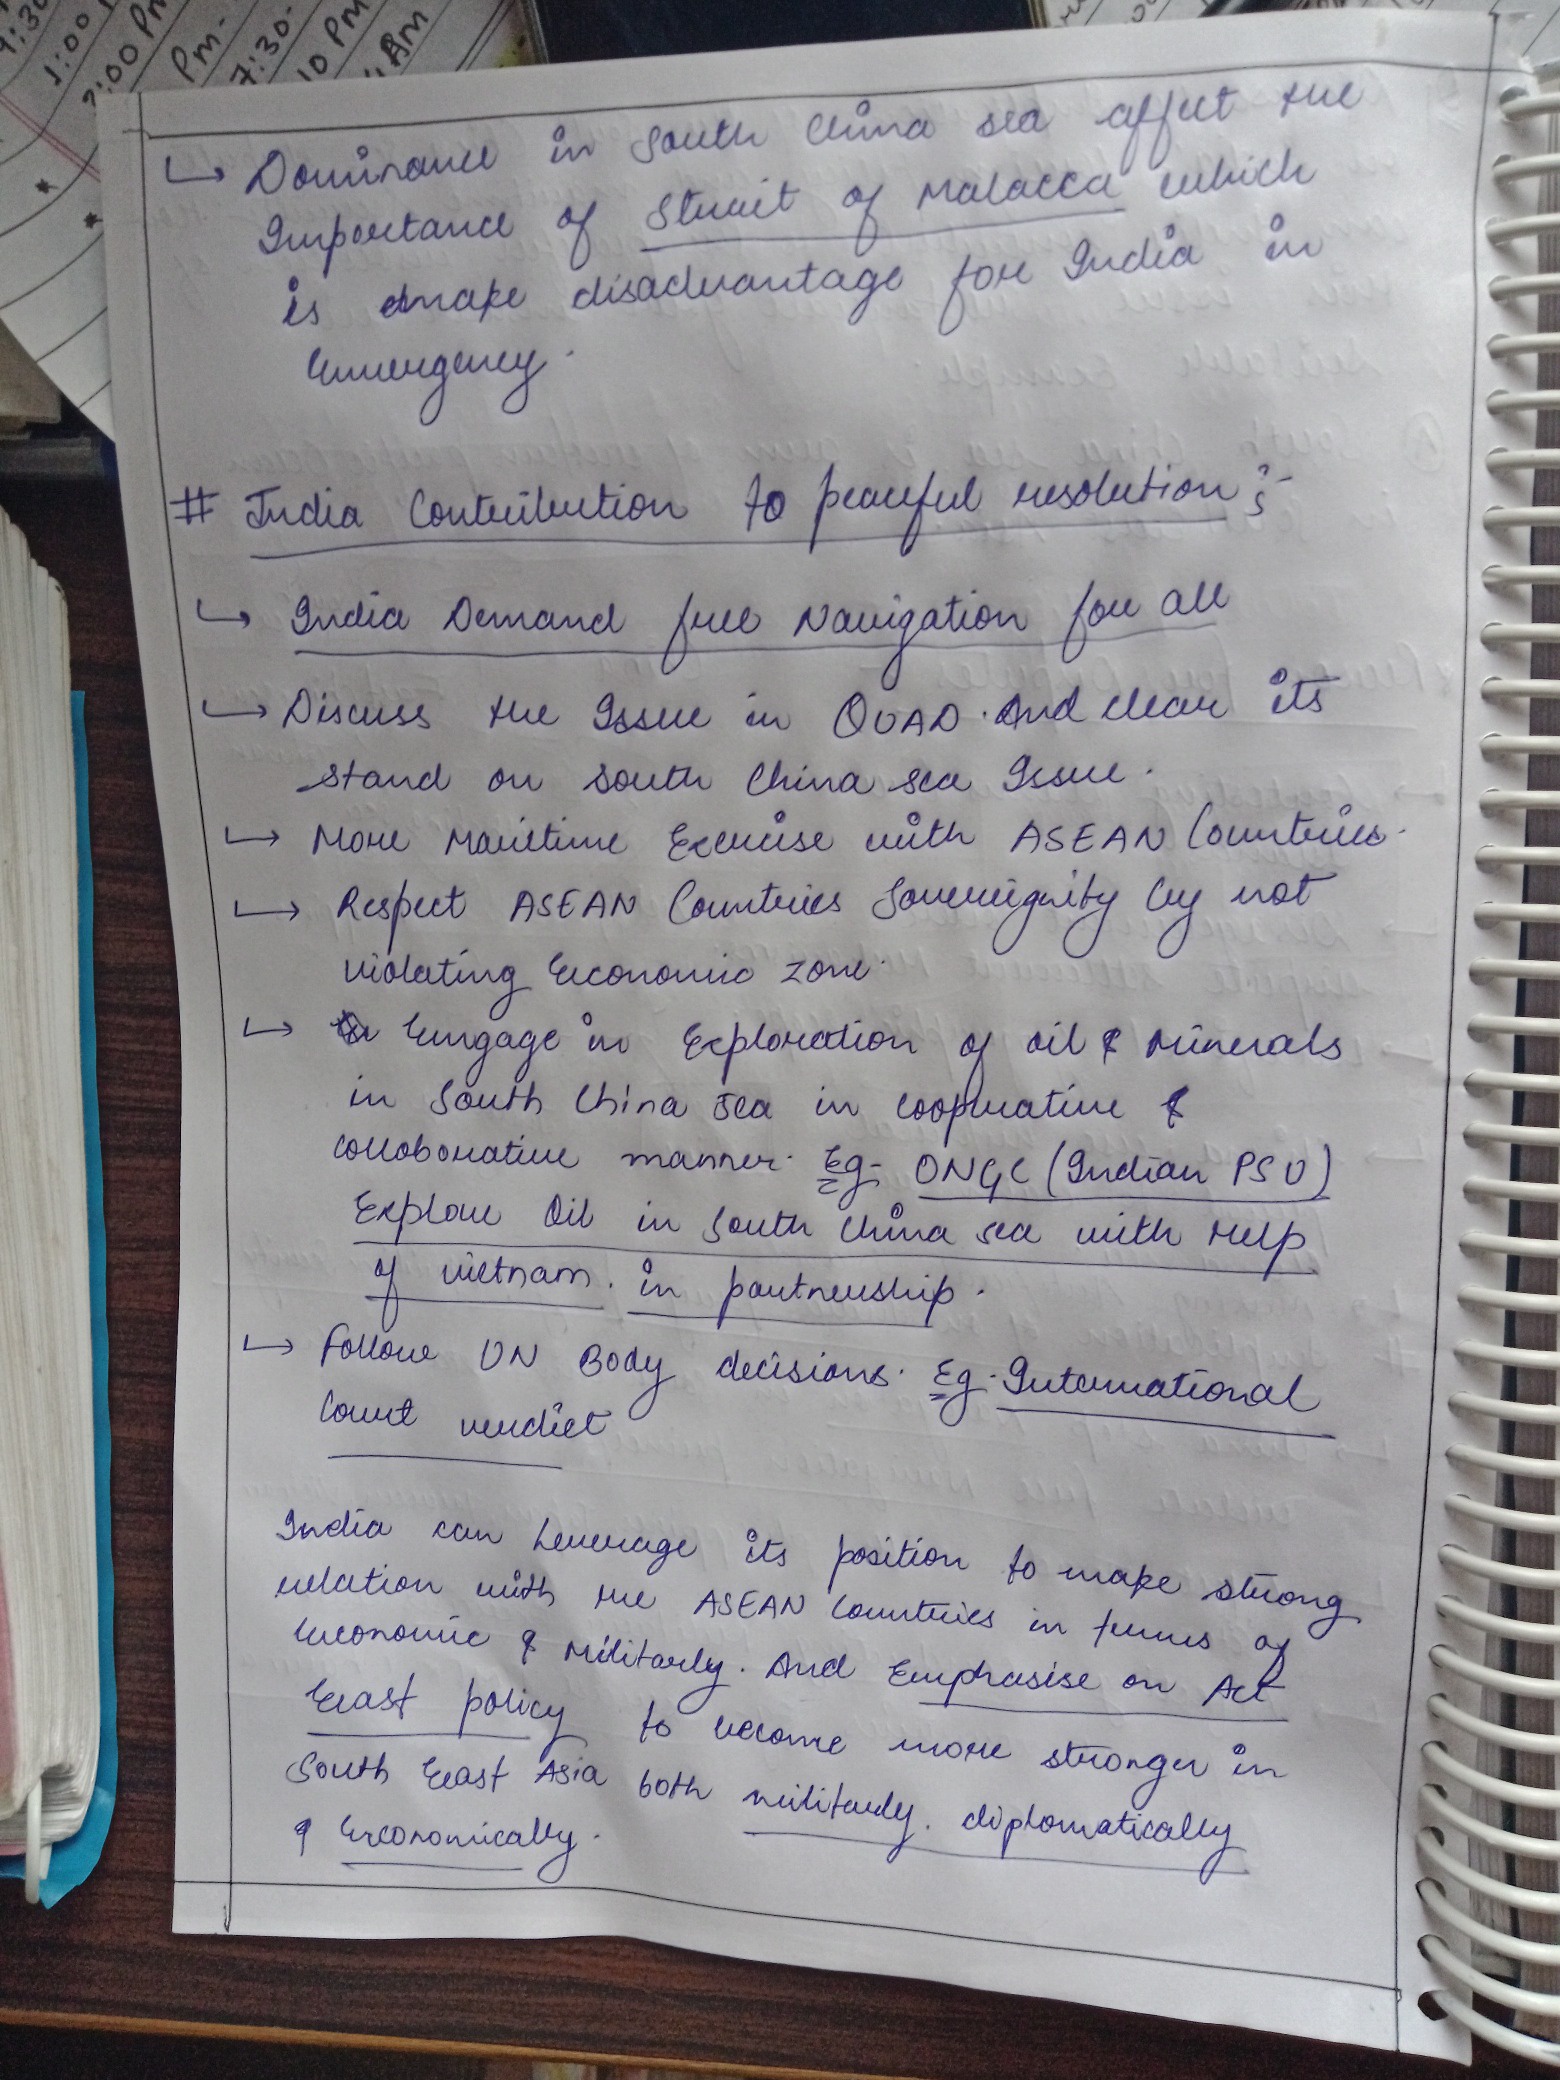 9:30
1:00 P
2:00 PM
PM-
7:30-
10 PM
11 AM
↳ Dominance in South China sea affect the
Importance of Strait of Malacca which
is make disadvantage for India in
Emergency.
# India Contribution to peaceful resolution :-
↳ India Demand free Navigation for all
↳ Discuss the Issue in QUAD. And clear its
stand on South China sea Issue.
↳ More Maritime Exercise with ASEAN Countries.
↳ Respect ASEAN Countries Sovereignity by not
violating Economic zone.
↳ Engage in Exploration of oil & Minerals
in South China Sea in cooperative &
collaborative manner. Eg- ONGC (Indian PSU)
Explore Oil in South China sea with Help
of Vietnam. in partnership.
↳ Follow UN Body decisions. Eg- International
Court verdict
India can Leverage its position to make strong
relation with the ASEAN Countries in terms of
Economic & Militarly. And Emphasise on Act
East policy to become more stronger in
South East Asia both militarly. diplomatically
& Economically.